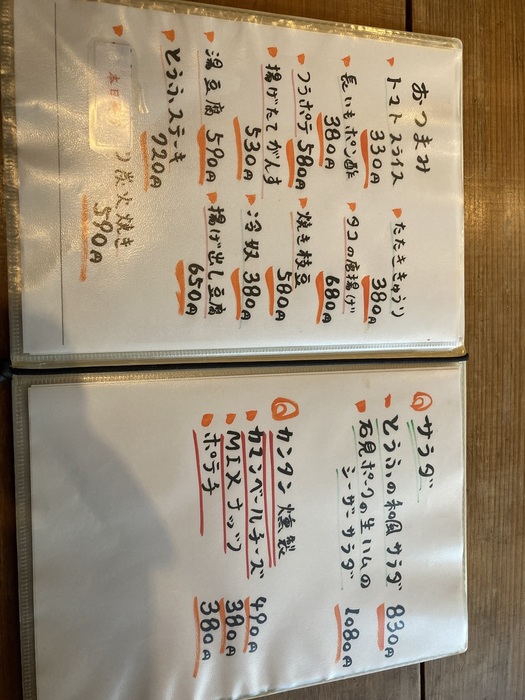 おつまみ
トマトスライス 330円
たたききゅうり 380円
長いもポン酢 380円
タコの唐揚げ 680円
フラポテ 580円
焼き枝豆 580円
揚げたてがんす 530円
冷奴 380円
湯豆腐 590円
揚げ出し豆腐 650円
とうふステーキ 720円
本日
炭火焼き 590円
サラダ
とうふの和風サラダ 830円
石見ポークの生ハムの
シーザーサラダ 1080円
カンタン燻製
カマンベールチーズ 490円
MIXナッツ 380円
ポテチ 380円